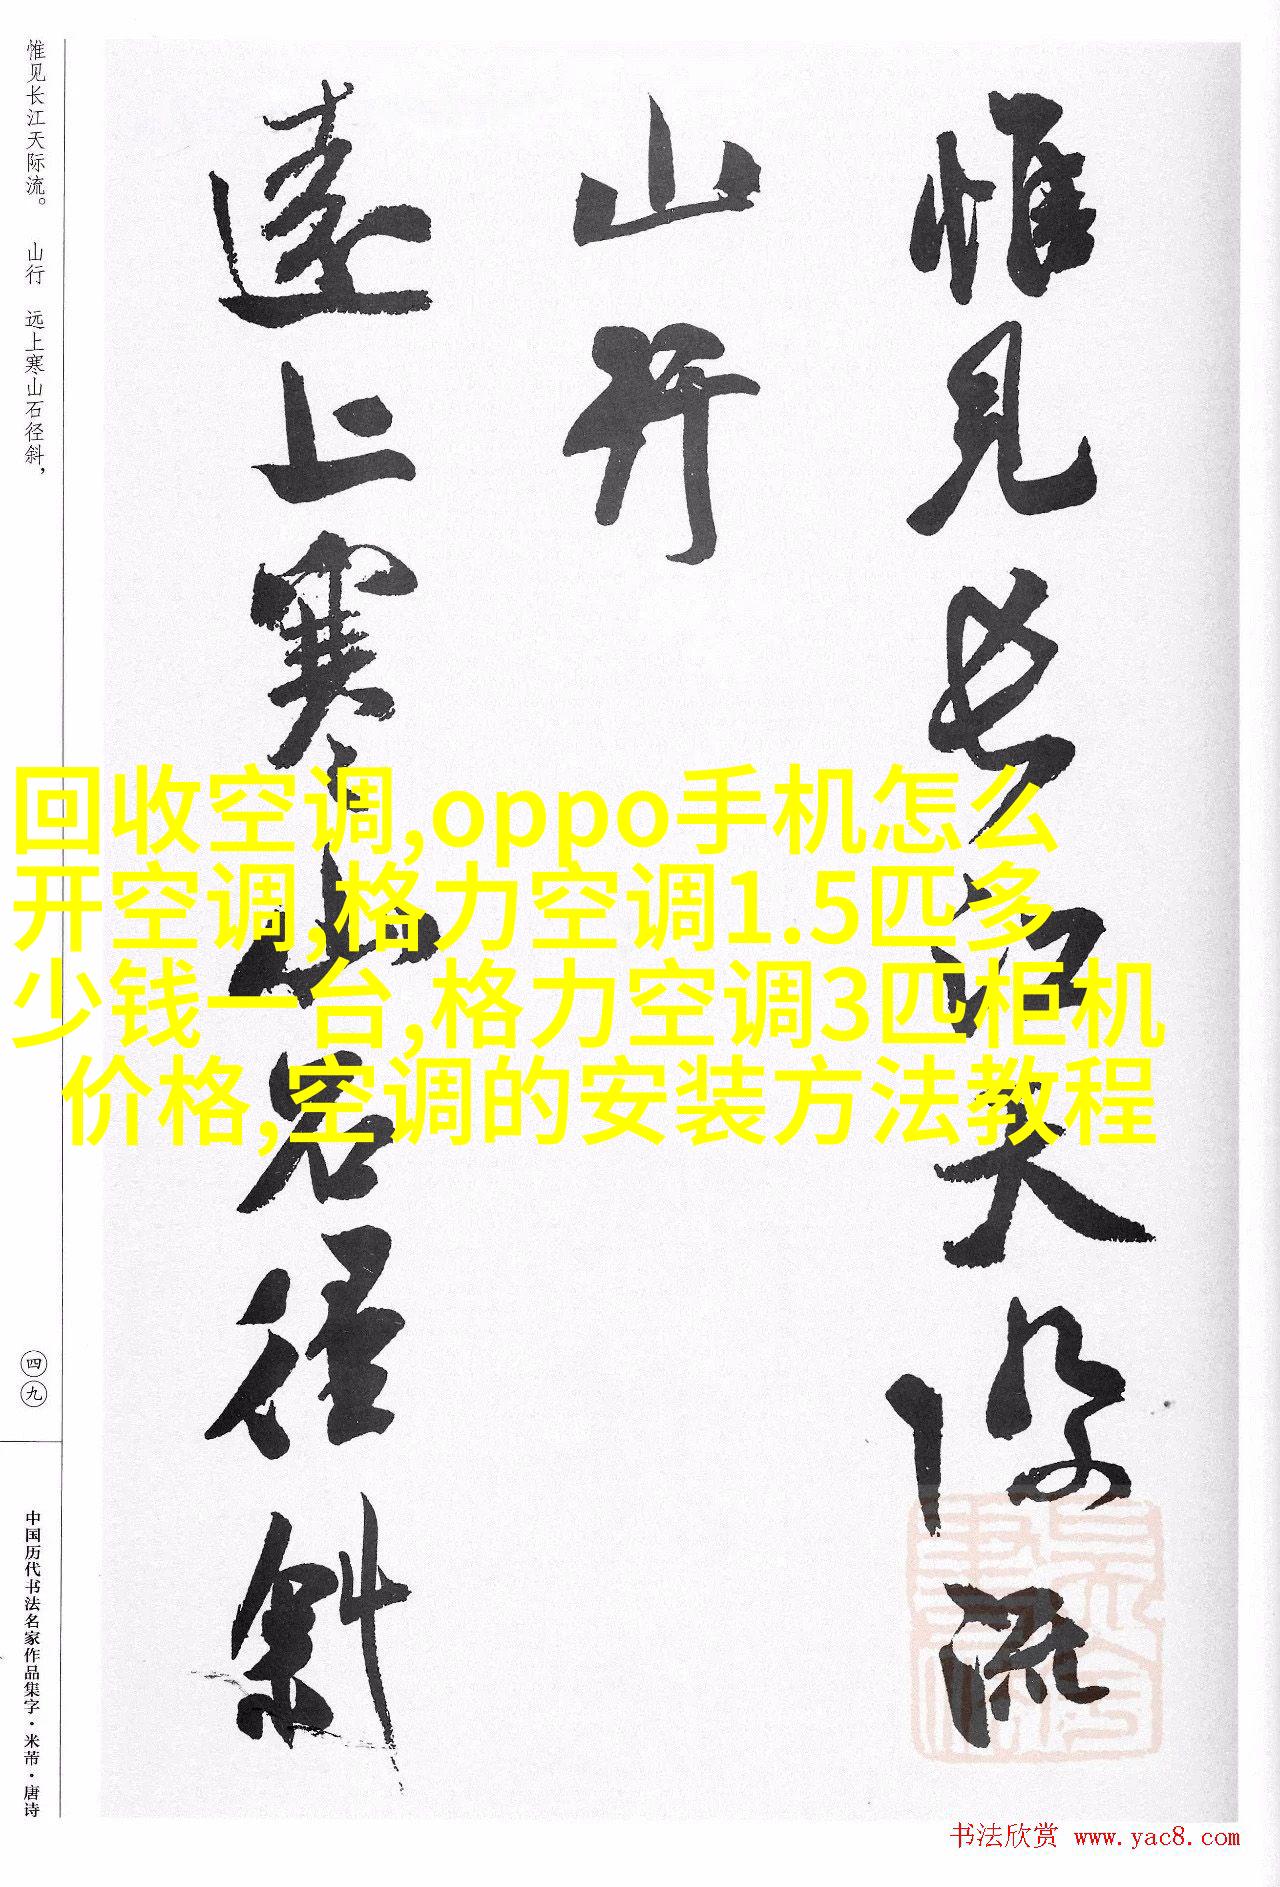 惟见长江天际流。 山行 远上寒山石径斜，
惟見長江天際流
山行
遠上寒山石徑斜
回收空调,oppo手机怎么
开空调,格力空调1.5匹多
少钱一台,格力空调3匹柜机
价格,空调的安装方法教程
四九
中国历代书法名家作品集字·米芾·唐诗
书法欣赏 www.yac8.com